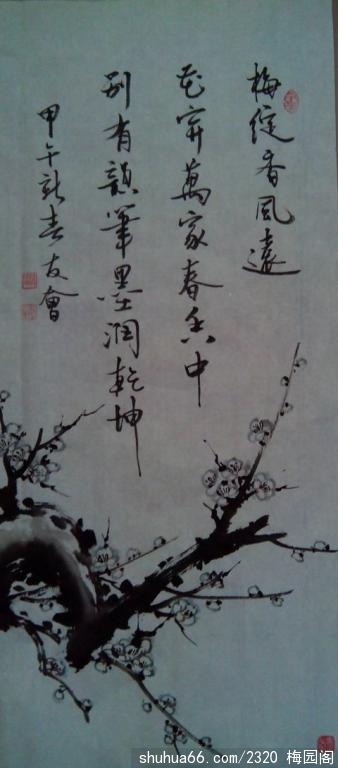 梅綻香風遠
花開萬家春香中
别有韻筆墨潤乾坤
甲午新春友會
shuhua66.com/2320 梅园阁